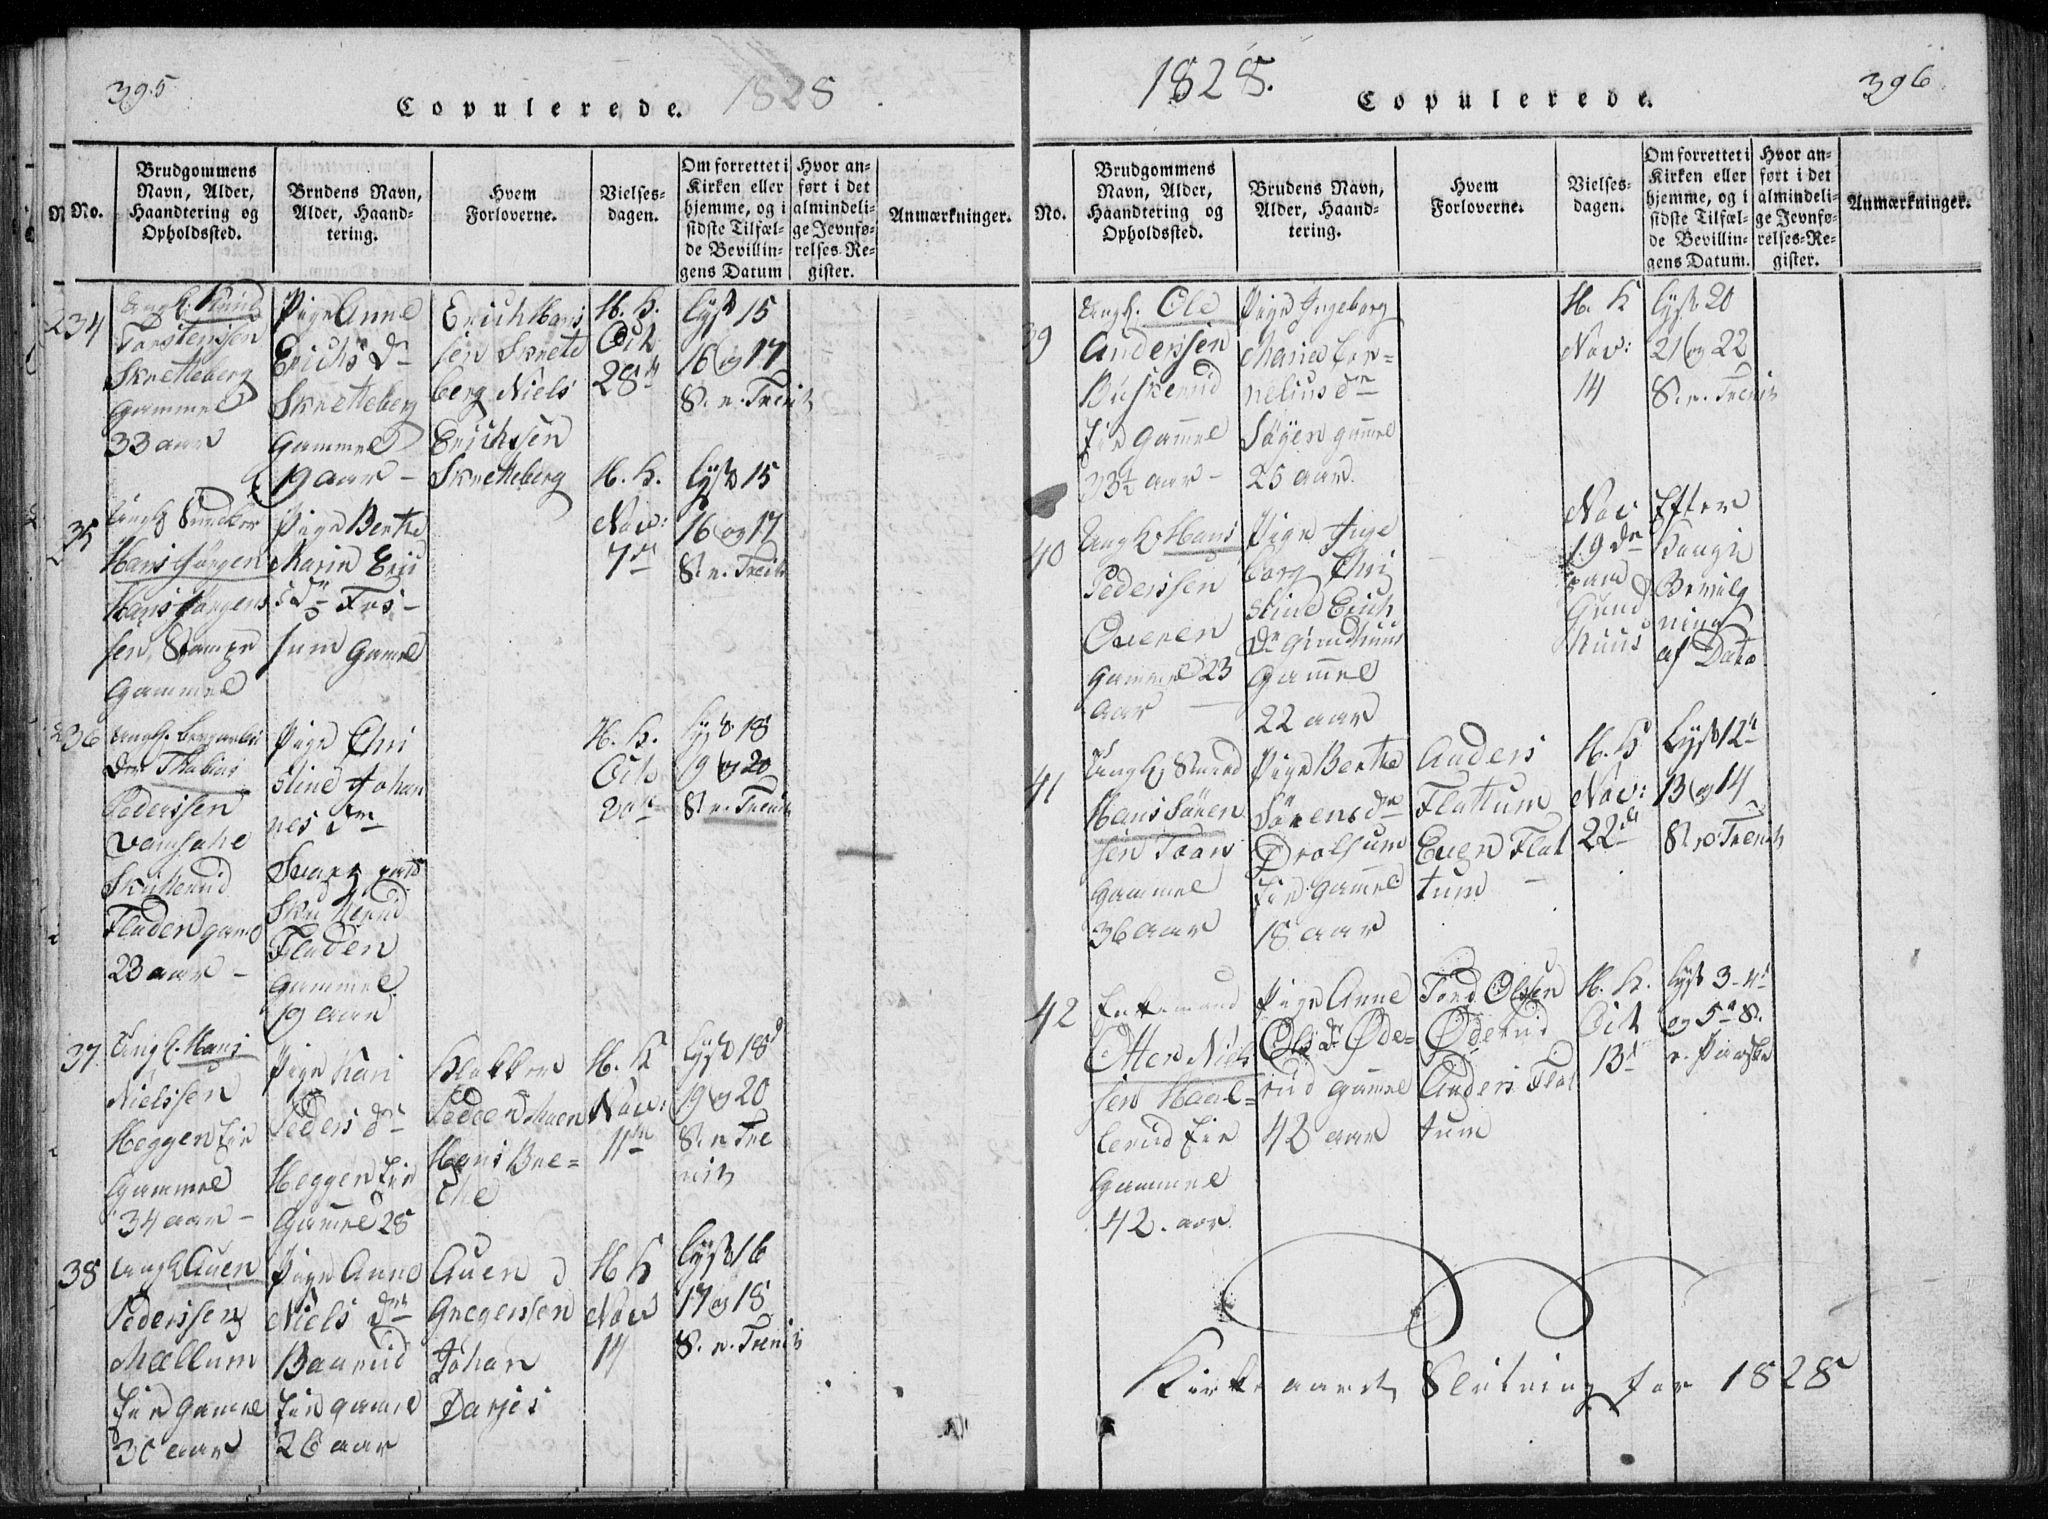 395
Copulerede. 1828
No.
Brudgommens
Navn, Alder,
Haandtering og
Opholdssted.
Brudens Navn,
Alder, Haand-
tering.
Hvem
Forloverne.
Vielses-
dagen.
Om forrettet i
Kirken eller
hjemme, og i
sidste Tilfæl-
de Bevillin-
gens Datum
Hvor an-
ført i det
almindeli-
ge Jevnfø-
relses-Re-
gister.
Anmærkninger.
34
Ungk. Knud
Torstenssen
Skretteberg
gammel
33 aar
Pige Anne
Erichs Dr
Skretteberg
Gammel
19 aar
Erich Hans
sen Skrette
berg Niels
Erichssen
Skretteberg
H. K.
Oct
28de
Lyst 15
16 og 17
S. n. Trenit
35
Hans Jørgen
Hans Jørgens
sen
gammel
Pige Berthe
Marie
sum Gamel
H. K.
Nov:
7de
Lyst 15
16 og 17
S. n. Trenit
36
Ungk.
Pederssen
Skutterud
Fladen gaml
23 aar
Pige Chri
stine Johan
nes Dr
Skutterud
Fladen
Gammel
19 aar
H. K.
Oct
Lyst 18
19 og 20
S. n. Trenit
37
Ungk. Hans
Nielssen
Heggen
Gammel
34 aar
Pige Kari
Peders Dr
Heggen
Gamel 28
Klokker
Peder
Hans Bre=
che
H. K
Nov:
11te
Lyst 18
19 og 20
S. n Tre
nit
38
Ungk Auen
Pederssen
Mællum
gamel
30 aar
Pige Anne
Niels Dr
Baarud
gamel
26 aar
Auen
Gregerssen
Johan
Darjes
H K
Nov
14
Lyst 16
17 og 18
S. n. Trenit
1828.
Copulerede.
396
No.
Brudgommens
Navn, Alder,
Haandtering og
Opholdssted.
Brudens Navn,
Alder, Haand-
tering.
Hvem
Forloverne.
Vielses-
dagen.
Om forrettet i
Kirken eller
hjemme, og i
sidste Tilfæl-
de Bevillin-
gens Datum.
Hvor an-
ført i det
almindeli-
ge Jevnfø-
relses-Re-
gister.
Anmærkninger.
39
Ungk. Ole
Anderssen
Buskerud
gamel
33½ aar
Pige Ingeborg
Maria Cor=
nelius Dr
Søyen gamel
25 aar
H. K
Nov:
14
Lyst 20
21 og 22
S. n. Trenit
40
Ungk. Hans
Pederssen
Overen
gammel 23
aar
Pige Inge
borg Chri
stine Erich
Dr Gundhuus
Gammel
22 aar
Nov
19de
paa
Gund
huus
Efter
Kongl
Bevilg
ning
af Dato
41
Ungk
Hans Søren
sen
gammel
36 aar
Pige Berthe
Sørens Dr
Drolsum
gamel
18 aar
Anders
Flattum
Even Flat
tum
H. K
Nov:
22de
Lyst 12te
13 og 14
S. n. Trenit
42
Enkemand
Otter Niels
sen Haal=
lerud
Gammel
42 aar
Pige Anne
Ols Dr Øde=
rud gamel
42 aar
Tord Olssen
Øderud
Anders Flat
tum
H. K.
Oct
13de
Lyst 3-4de
og 5te S.
n. Paaske
Kirke aarets Slutning for 1828